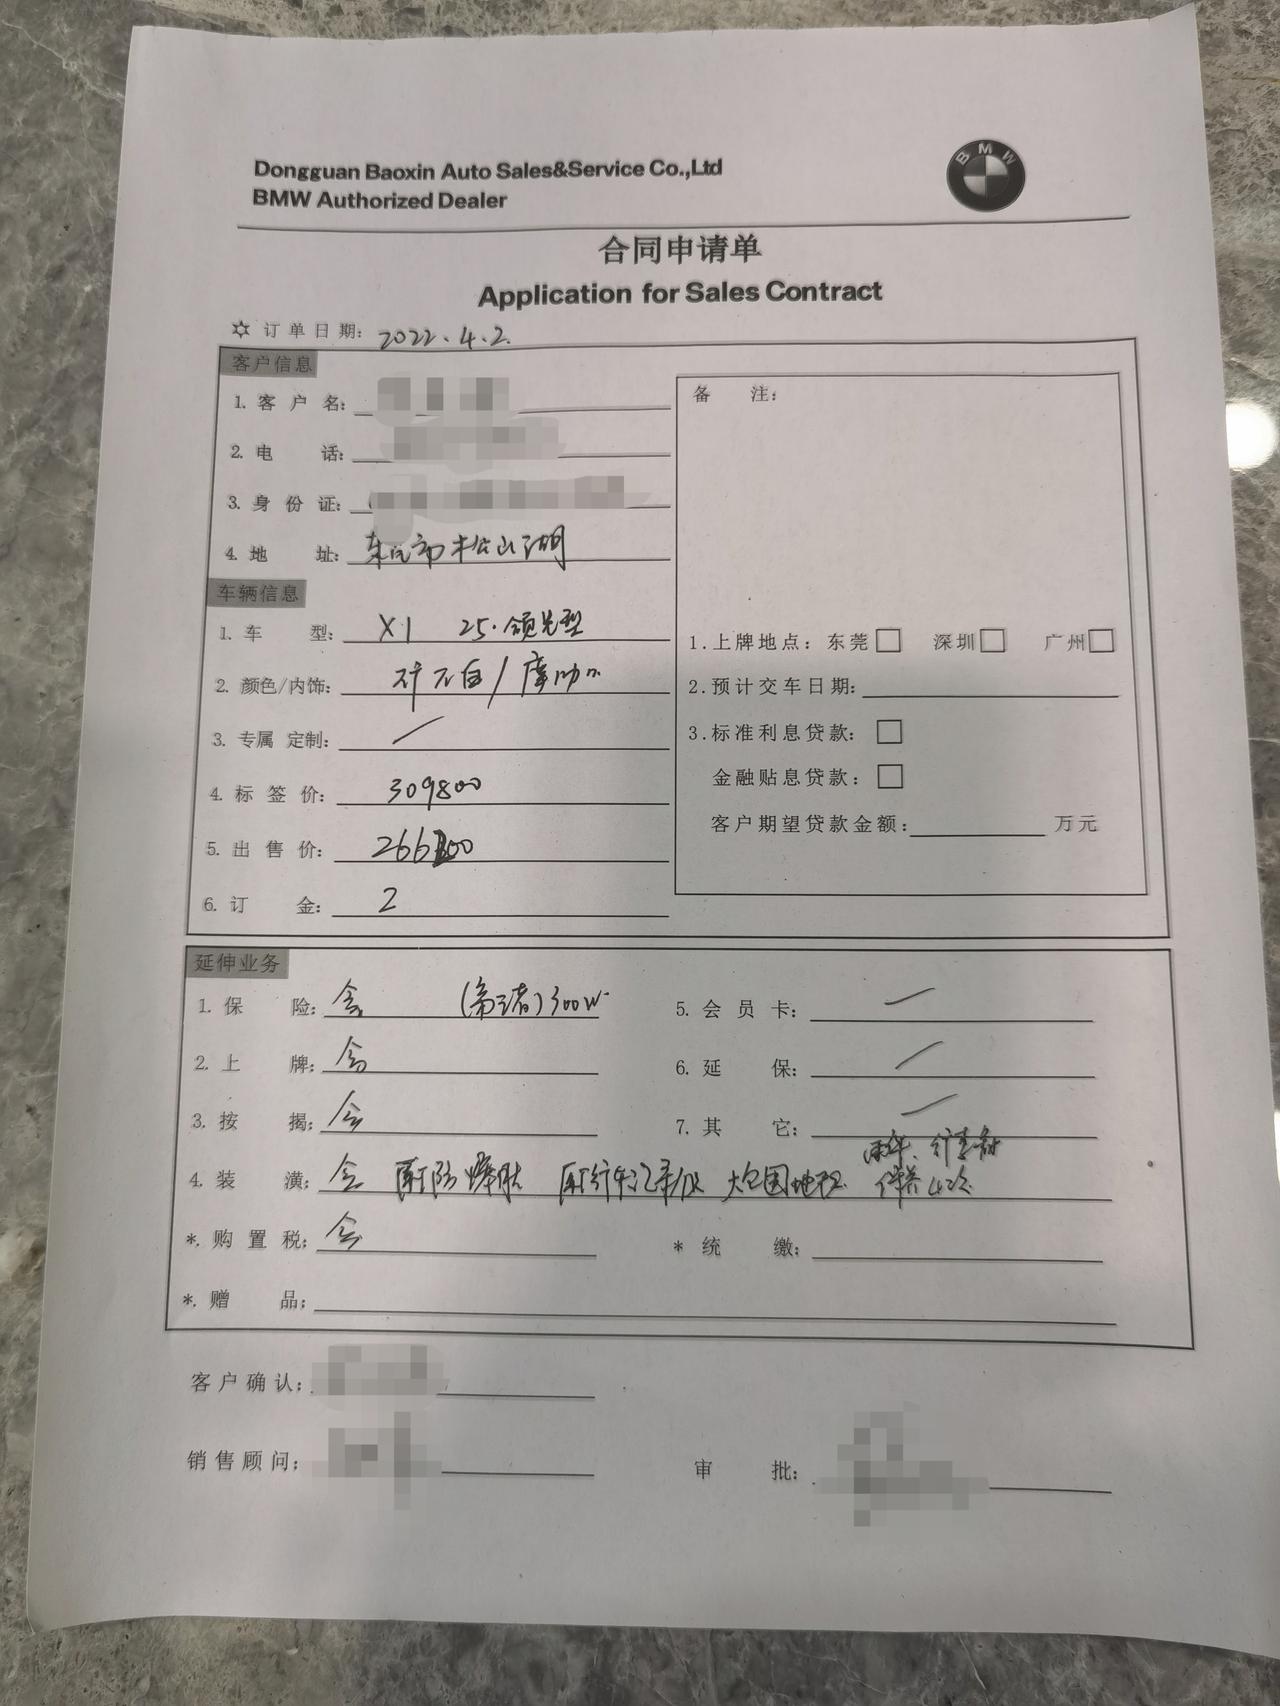 Dongguan Baoxin Auto Sales&Service Co.,Ltd
BMW Authorized Dealer
BMW
合同申请单
Application for Sales Contract
☆ 订单日期: 2022.4.2.
客户信息
备 注:
1. 客户名:
2. 电 话:
3. 身份证:
4. 地 址: 东莞市松山湖
车辆信息
1. 车 型: X1 25·领先型
1.上牌地点: 东莞□ 深圳□ 广州□
2. 颜色/内饰: 白/摩
2.预计交车日期:
3. 专属定制: /
3.标准利息贷款: □
4. 标签价: 309800
金融贴息贷款: □
5. 出售价: 266
客户期望贷款金额: 万元
6. 订 金: 2
延伸业务
1. 保 险: 含 (第三者)300W
5. 会员卡: /
2. 上 牌: 含
6. 延 保: /
3. 按 揭: 含
7. 其 它: /
4. 装 潢: 含 大包围地
保养4次
*. 购置税: 含
* 统 缴:
*. 赠 品:
客户确认:
销售顾问:
审 批: